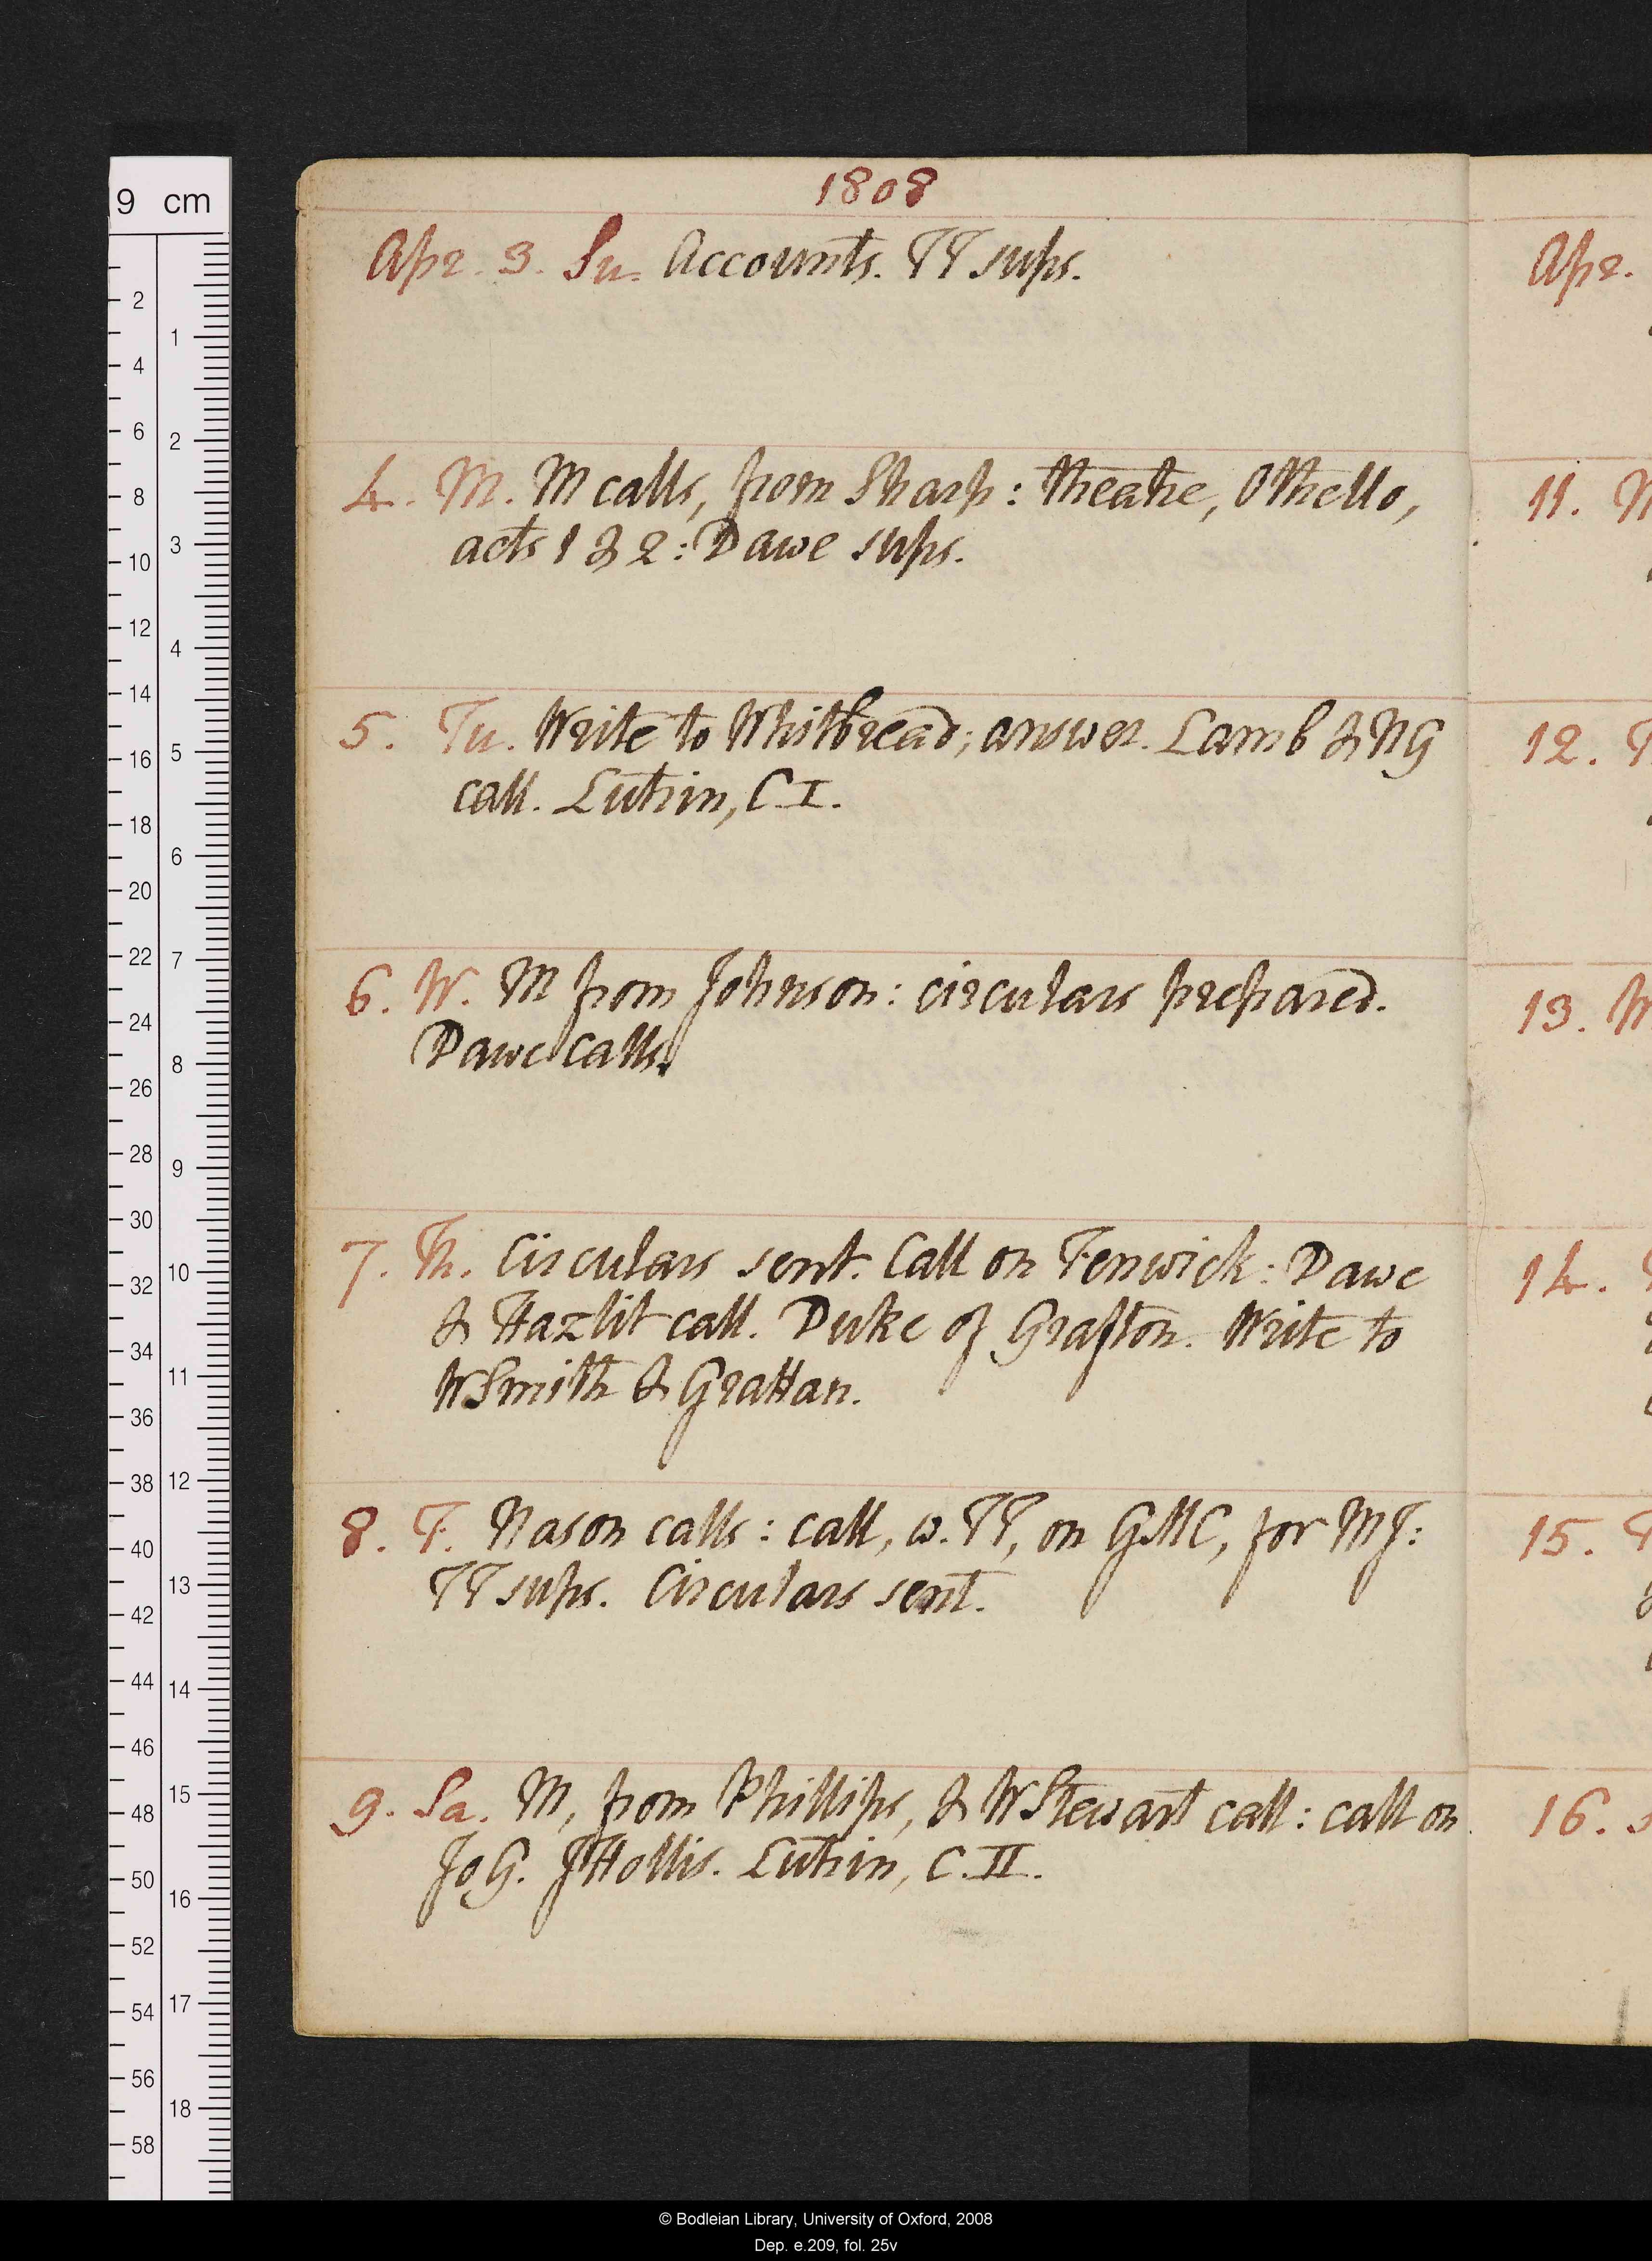 1808
Apr. 3. Su. Accounts. TT sups.
4. M. M calls, from Sharp: theatre, Othello,
acts 1 & 2: Dawe sups.
5. Tu. Write to Whitbread; answer. Lamb & NG
call. Lutrin, C. I.
6. W. M from Johnson: circulars prepared.
Dawe calls.
7. Th. Circulars sent. Call on Fenwick: Dawe
& Hazlit call. Duke of Grafton. Write to
W Smith & Grattan.
8. F. Nason calls: call, w. TT, on GMC, for MJ:
TT sups. Circulars sent.
9. Sa. M, from Phillips, & W Stewart call: call on
Jo G. J Hollis. Lutrin, C. II.
Apr.
11. M
12. T
13. W
14.
15. F
16. S
9 cm
2
4
6
8
10
12
14
16
18
20
22
24
26
28
30
32
34
36
38
40
42
44
46
48
50
52
54
56
58
1
2
3
4
5
6
7
8
9
10
11
12
13
14
15
16
17
18
© Bodleian Library, University of Oxford, 2008
Dep. e.209, fol. 25v